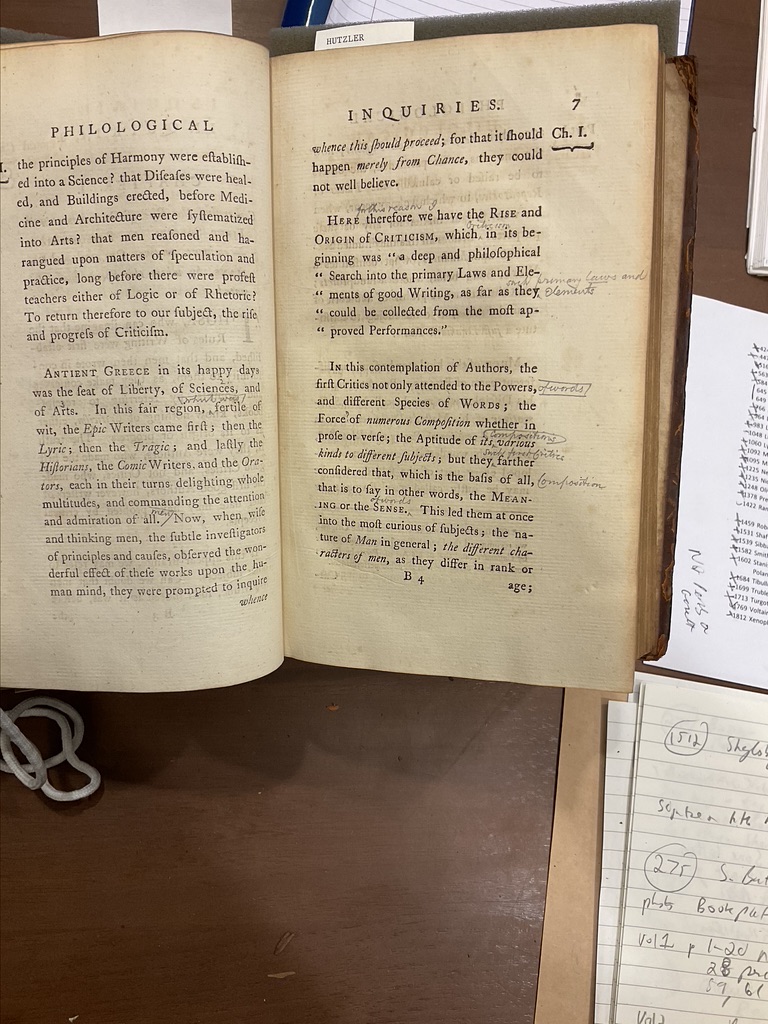 HUTZLER
PHILOLOGICAL
I.
the principles of Harmony were eſtabliſh-
ed into a Science? that Diſeaſes were heal-
ed, and Buildings erected, before Medi-
cine and Architecture were ſyſtematized
into Arts? that men reaſoned and ha-
rangued upon matters of ſpeculation and
practice, long before there were profeſt
teachers either of Logic or of Rhetoric?
To return therefore to our ſubject, the riſe
and progreſs of Criticiſm.
ANTIENT GREECE in its happy days
was the ſeat of Liberty, of Sciences, and
of Arts. In this fair region, fertile of
wit, the Epic Writers came firſt; then the
Lyric; then the Tragic; and laſtly the
Hiſtorians, the Comic Writers, and the Ora-
tors, each in their turns delighting whole
multitudes, and commanding the attention
and admiration of all. Now, when wiſe
and thinking men, the ſubtle inveſtigators
of principles and cauſes, obſerved the won-
derful effect of theſe works upon the hu-
man mind, they were prompted to inquire
whence
INQUIRIES. 7
Ch. I.
whence this ſhould proceed; for that it ſhould
happen merely from Chance, they could
not well believe.
for this reason
HERE therefore we have the RISE and
Criticism
ORIGIN of CRITICISM, which in its be-
ginning was "a deep and philoſophical
" Search into the primary Laws and Ele-
primary laws and
" ments of good Writing, as far as they
elements
" could be collected from the moſt ap-
" proved Performances."
IN this contemplation of Authors, the
firſt Critics not only attended to the Powers,
of words
and different Species of WORDS; the
Force of numerous Compoſition whether in
proſe or verſe; the Aptitude of its various
compositions
kinds to different ſubjects; but they farther
conſidered that, which is the baſis of all,
composition
that is to ſay in other words, the MEAN-
of words
ING or the SENSE. This led them at once
into the moſt curious of ſubjects; the na-
ture of Man in general; the different cha-
racters of men, as they differ in rank or
B 4 age;
1459 Rob
1531 Shaf
1539 Sibb
1582 Smit
1602 Stani
Polan
1684 Tibul
1699 Truble
1713 Turgot
1769 Voltair
1812 Xenop
1512
275
photos
vol 1 p 1-20